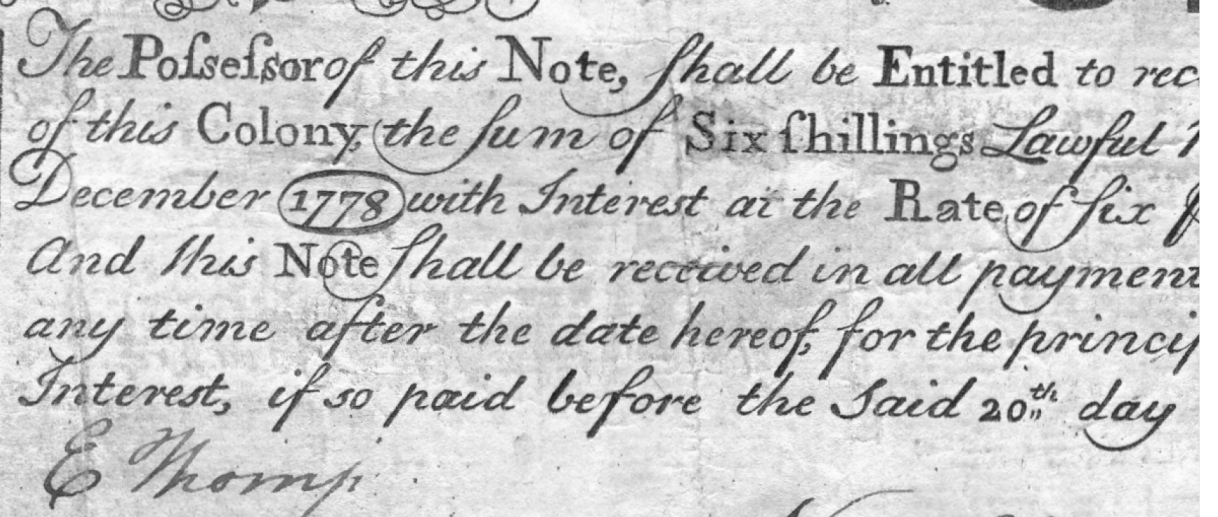 The Poſseſsor of this Note, ſhall be Entitled to rec
of this Colony, the ſum of Six ſhillings Lawful
December 1778 with Interest at the Rate, of ſix
And this Note ſhall be received in all payment
any time after the date hereof, for the princip
Interest, if so paid before the Said 20th day
E Thomp